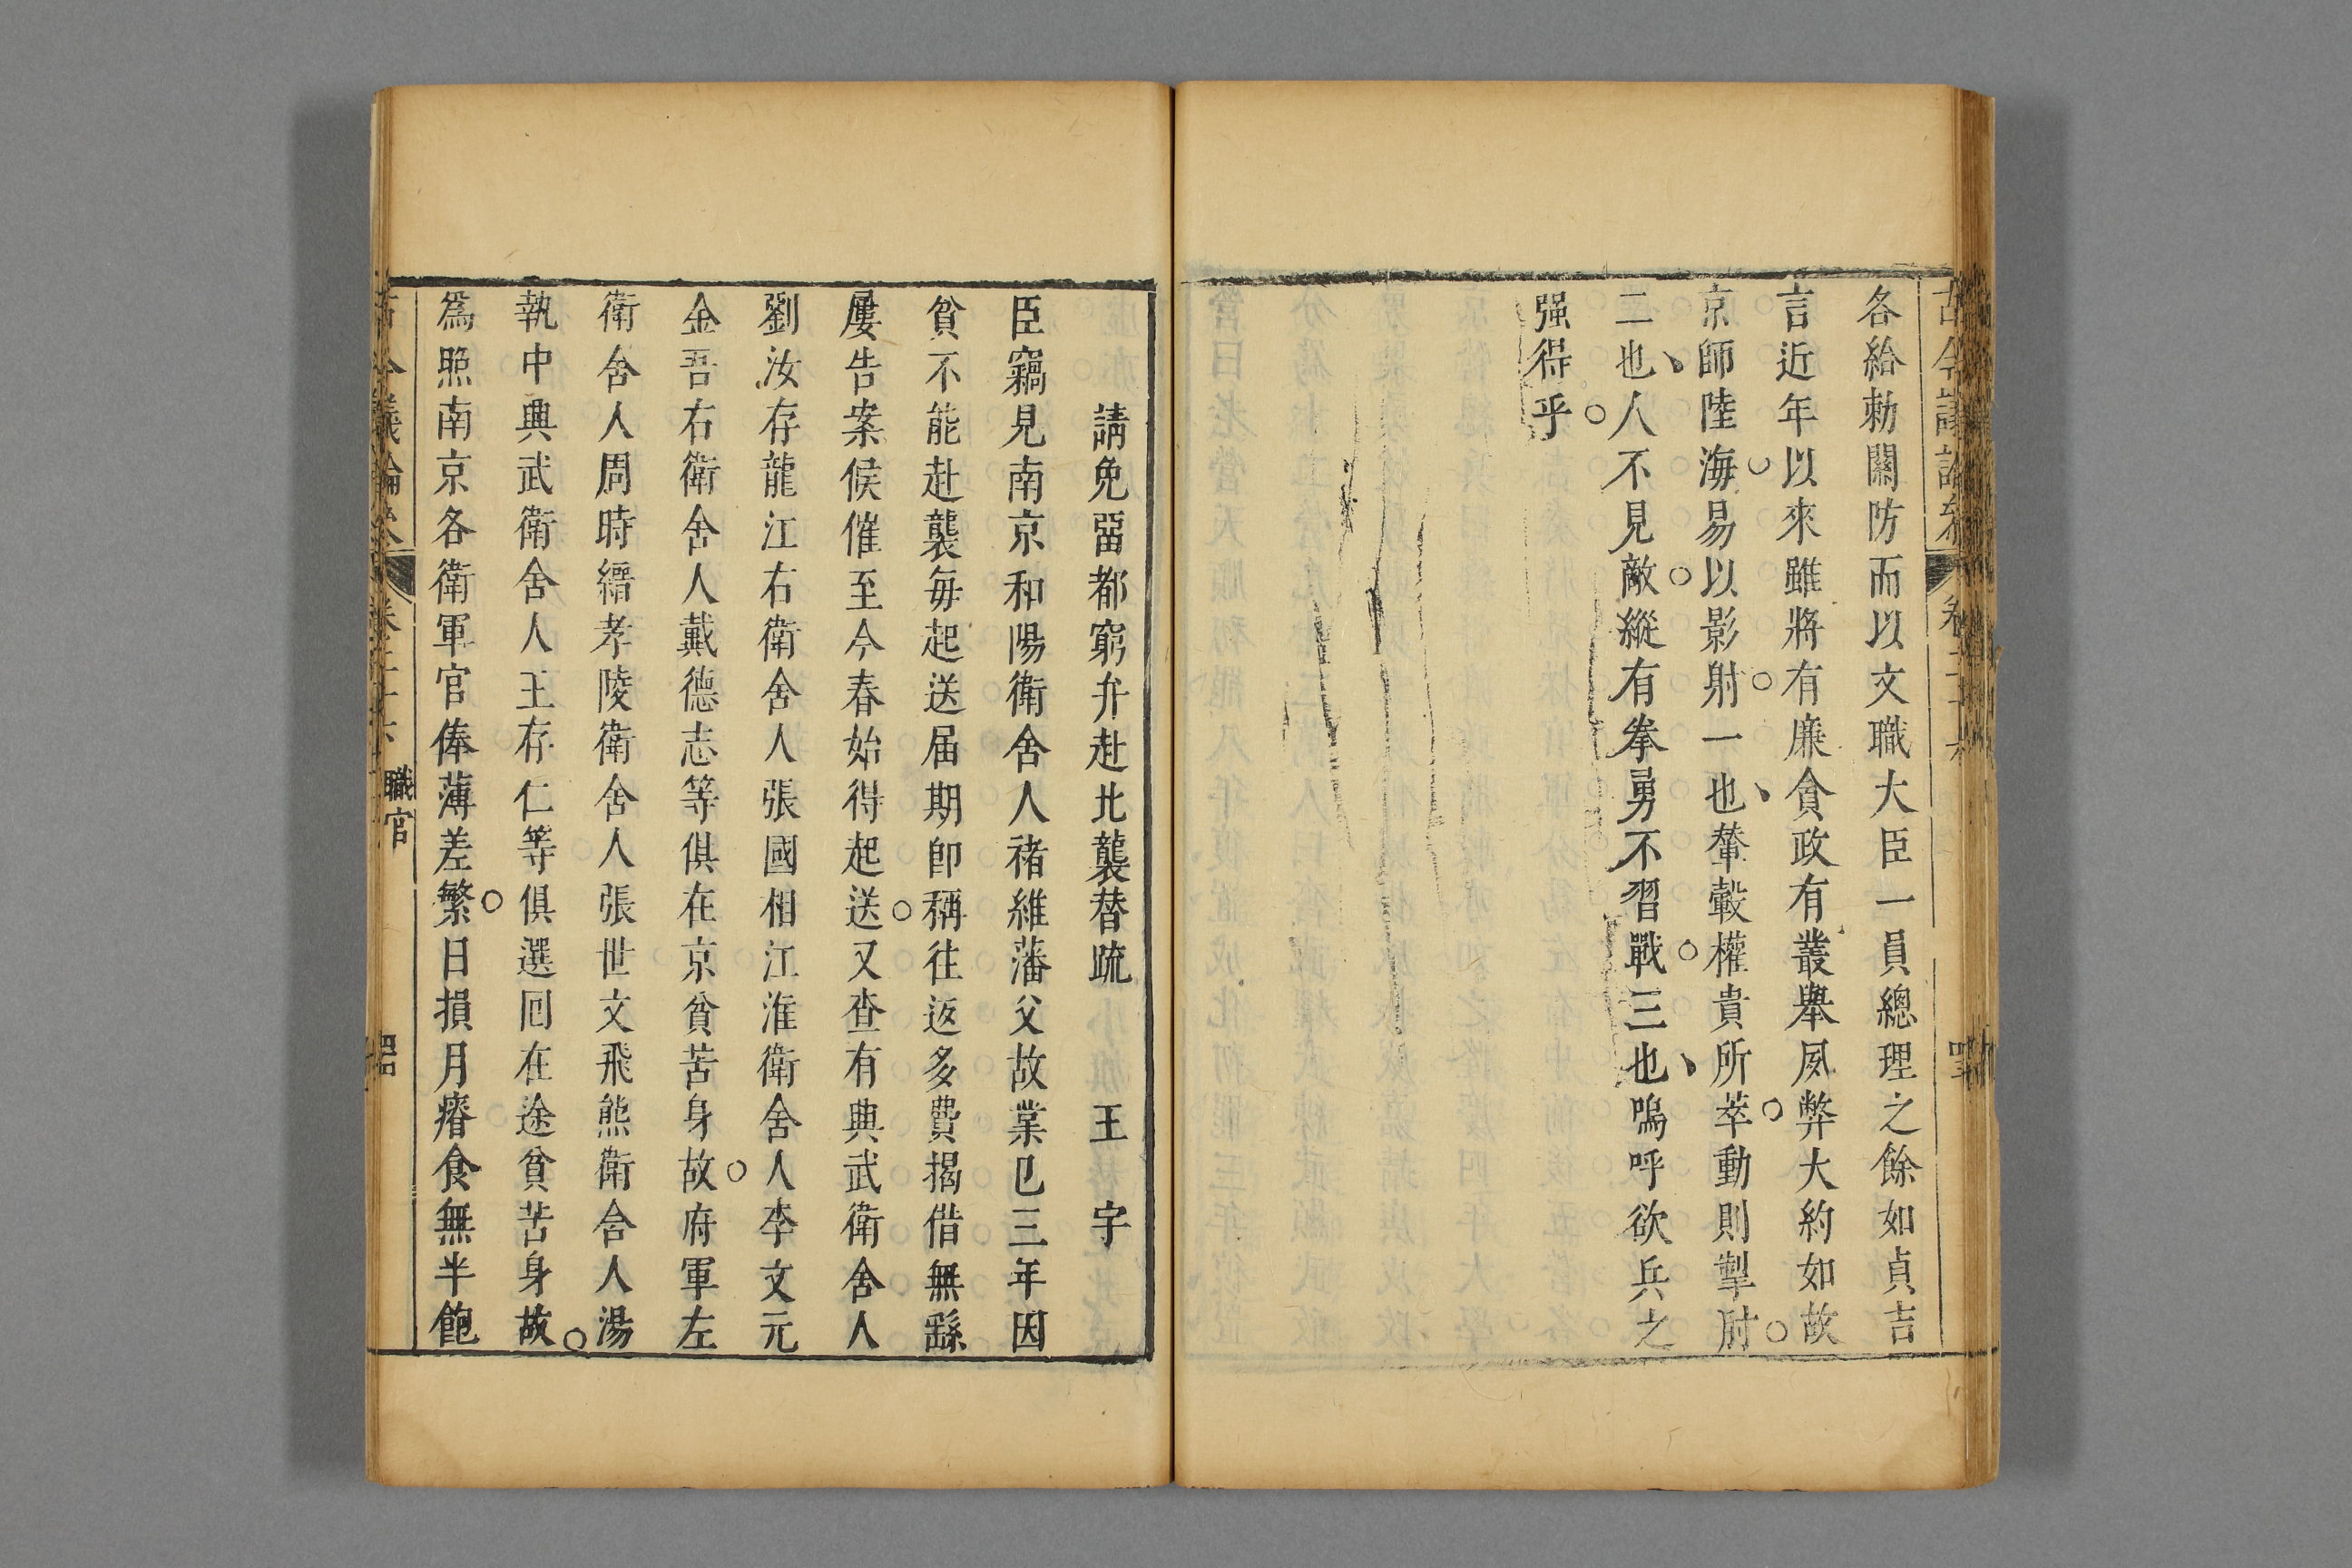 各給勅關防而以文職大臣一員總理之餘如貞吉
言近年以來雖將有廉貪政有叢舉夙弊大約如故
京師陸海易以影射一也輦轂權貴所萃動則掣肘
二也人不見敵縱有拳勇不習戰三也嗚呼欲兵之
强得乎
請免畱都窮弁赴北襲替疏 王 宇
臣竊見南京和陽衛舍人禇維藩父故業已三年因
貧不能赴襲每起送届期卽稱往返多費揭借無繇
屢告案候催至今春始得起送又查有典武衛舍人
劉汝存龍江右衛舍人張國相江淮衛舍人李文元
金吾右衛舍人戴德志等俱在京貧苦身故府軍左
衛舍人周時縉孝陵衛舍人張世文飛熊衛舍人湯
執中興武衛舍人王存仁等俱選囘在途貧苦身故
爲照南京各衛軍官俸薄差繁日損月瘠食無半飽
職官